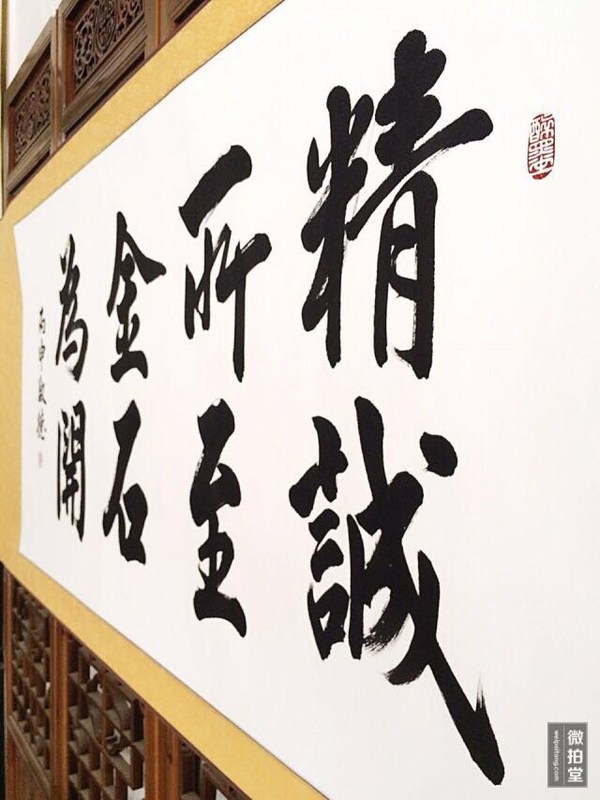 精誠
所至
金石
為開
丙申
微拍堂
weipaitang.com